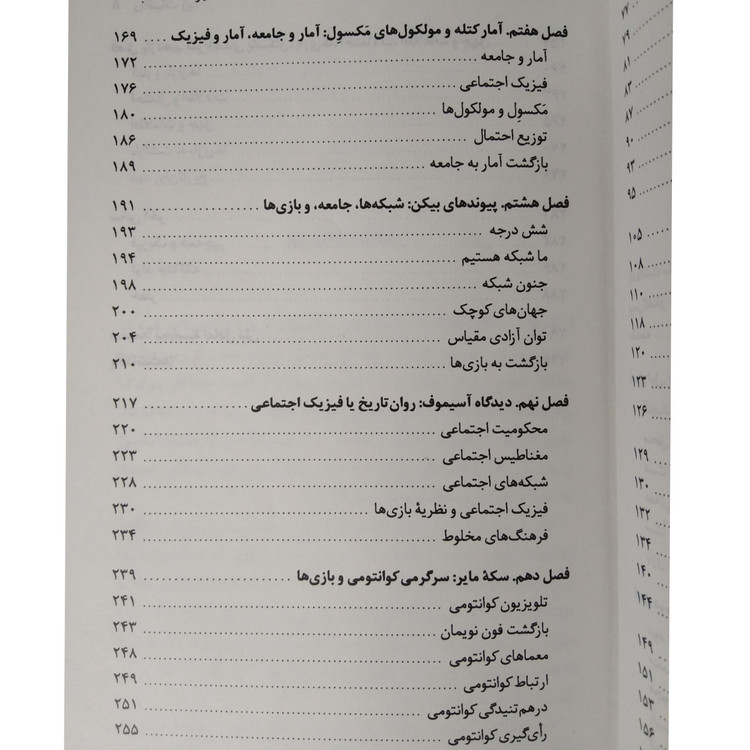 فصل هفتم. آمار کتله و مولکول‌های مَکسوِل: آمار و جامعه، آمار و فیزیک ..... ۱۶۹
آمار و جامعه ..... ۱۷۲
فیزیک اجتماعی ..... ۱۷۶
مَکسوِل و مولکول‌ها ..... ۱۸۰
توزیع احتمال ..... ۱۸۶
بازگشت آمار به جامعه ..... ۱۸۹
فصل هشتم. پیوندهای بیکن: شبکه‌ها، جامعه، و بازی‌ها ..... ۱۹۱
شش درجه ..... ۱۹۳
ما شبکه هستیم ..... ۱۹۴
جنون شبکه ..... ۱۹۸
جهان‌های کوچک ..... ۲۰۰
توان آزادی مقیاس ..... ۲۰۴
بازگشت به بازی‌ها ..... ۲۱۰
فصل نهم. دیدگاه آسیموف: روان‌تاریخ یا فیزیک اجتماعی ..... ۲۱۷
محکومیت اجتماعی ..... ۲۲۰
مغناطیس اجتماعی ..... ۲۲۳
شبکه‌های اجتماعی ..... ۲۲۸
فیزیک اجتماعی و نظریهٔ بازی‌ها ..... ۲۳۰
فرهنگ‌های مخلوط ..... ۲۳۴
فصل دهم. سکهٔ مایر: سرگرمی کوانتومی و بازی‌ها ..... ۲۳۹
تلویزیون کوانتومی ..... ۲۴۱
بازگشت فون نویمان ..... ۲۴۳
معماهای کوانتومی ..... ۲۴۸
ارتباط کوانتومی ..... ۲۴۹
درهم‌تنیدگی کوانتومی ..... ۲۵۱
رأی‌گیری کوانتومی ..... ۲۵۵
۷۷
۷۹
۸۱
۸۳
۸۷
۹۰
۹۳
۹۵
۱۰۵
۱۰۸
۱۱۰
۱۱۸
۱۲۰
۱۲۳
۱۲۶
۱۲۹
۱۳۰
۱۳۲
۱۳۴
۱۴۰
۱۴۴
۱۴۹
۱۵۱
۱۵۳
۱۵۶